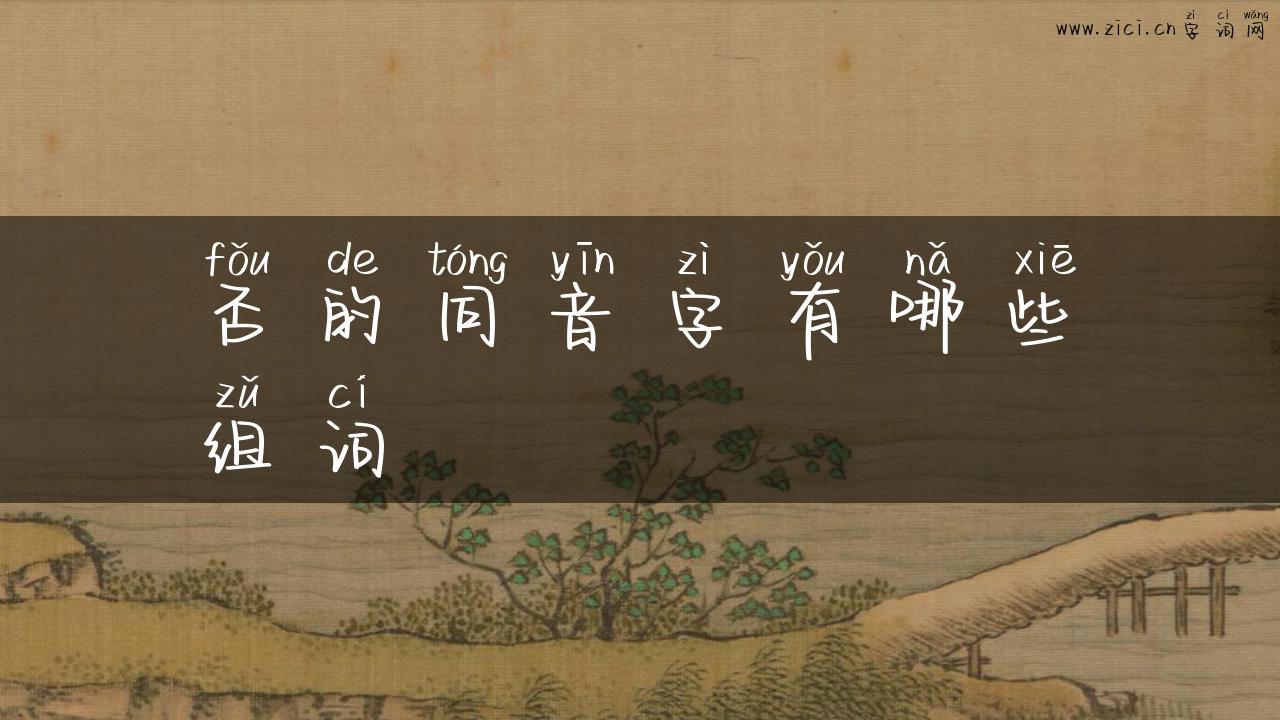 zì cí wǎng
www.zici.cn 字 词 网
fǒu de tóng yīn zì yǒu nǎ xiē
否 的 同 音 字 有 哪 些
zǔ cí
组 词